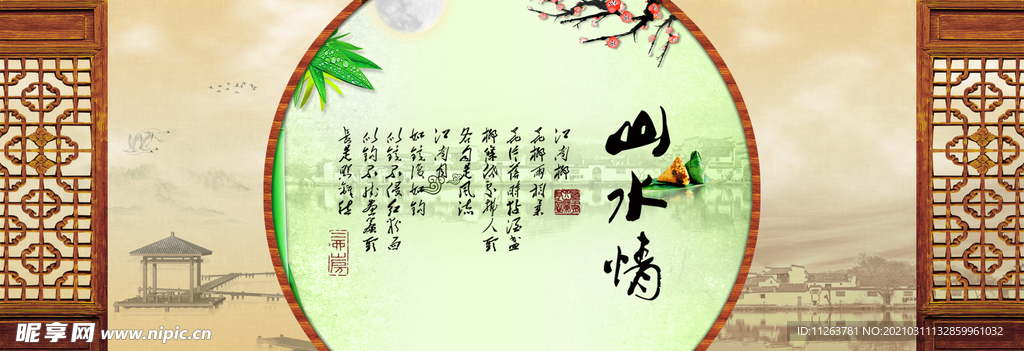 山水情
江南柳
花柳两相柔
花片落时黏酒盏
柳条低处拂人头
各自是风流
江南月
如镜复如钩
似镜不侵红粉面
似钩不挂画帘头
长是照离愁
昵享网 www.nipic.cn
ID:11263781 NO:20210311132859961032